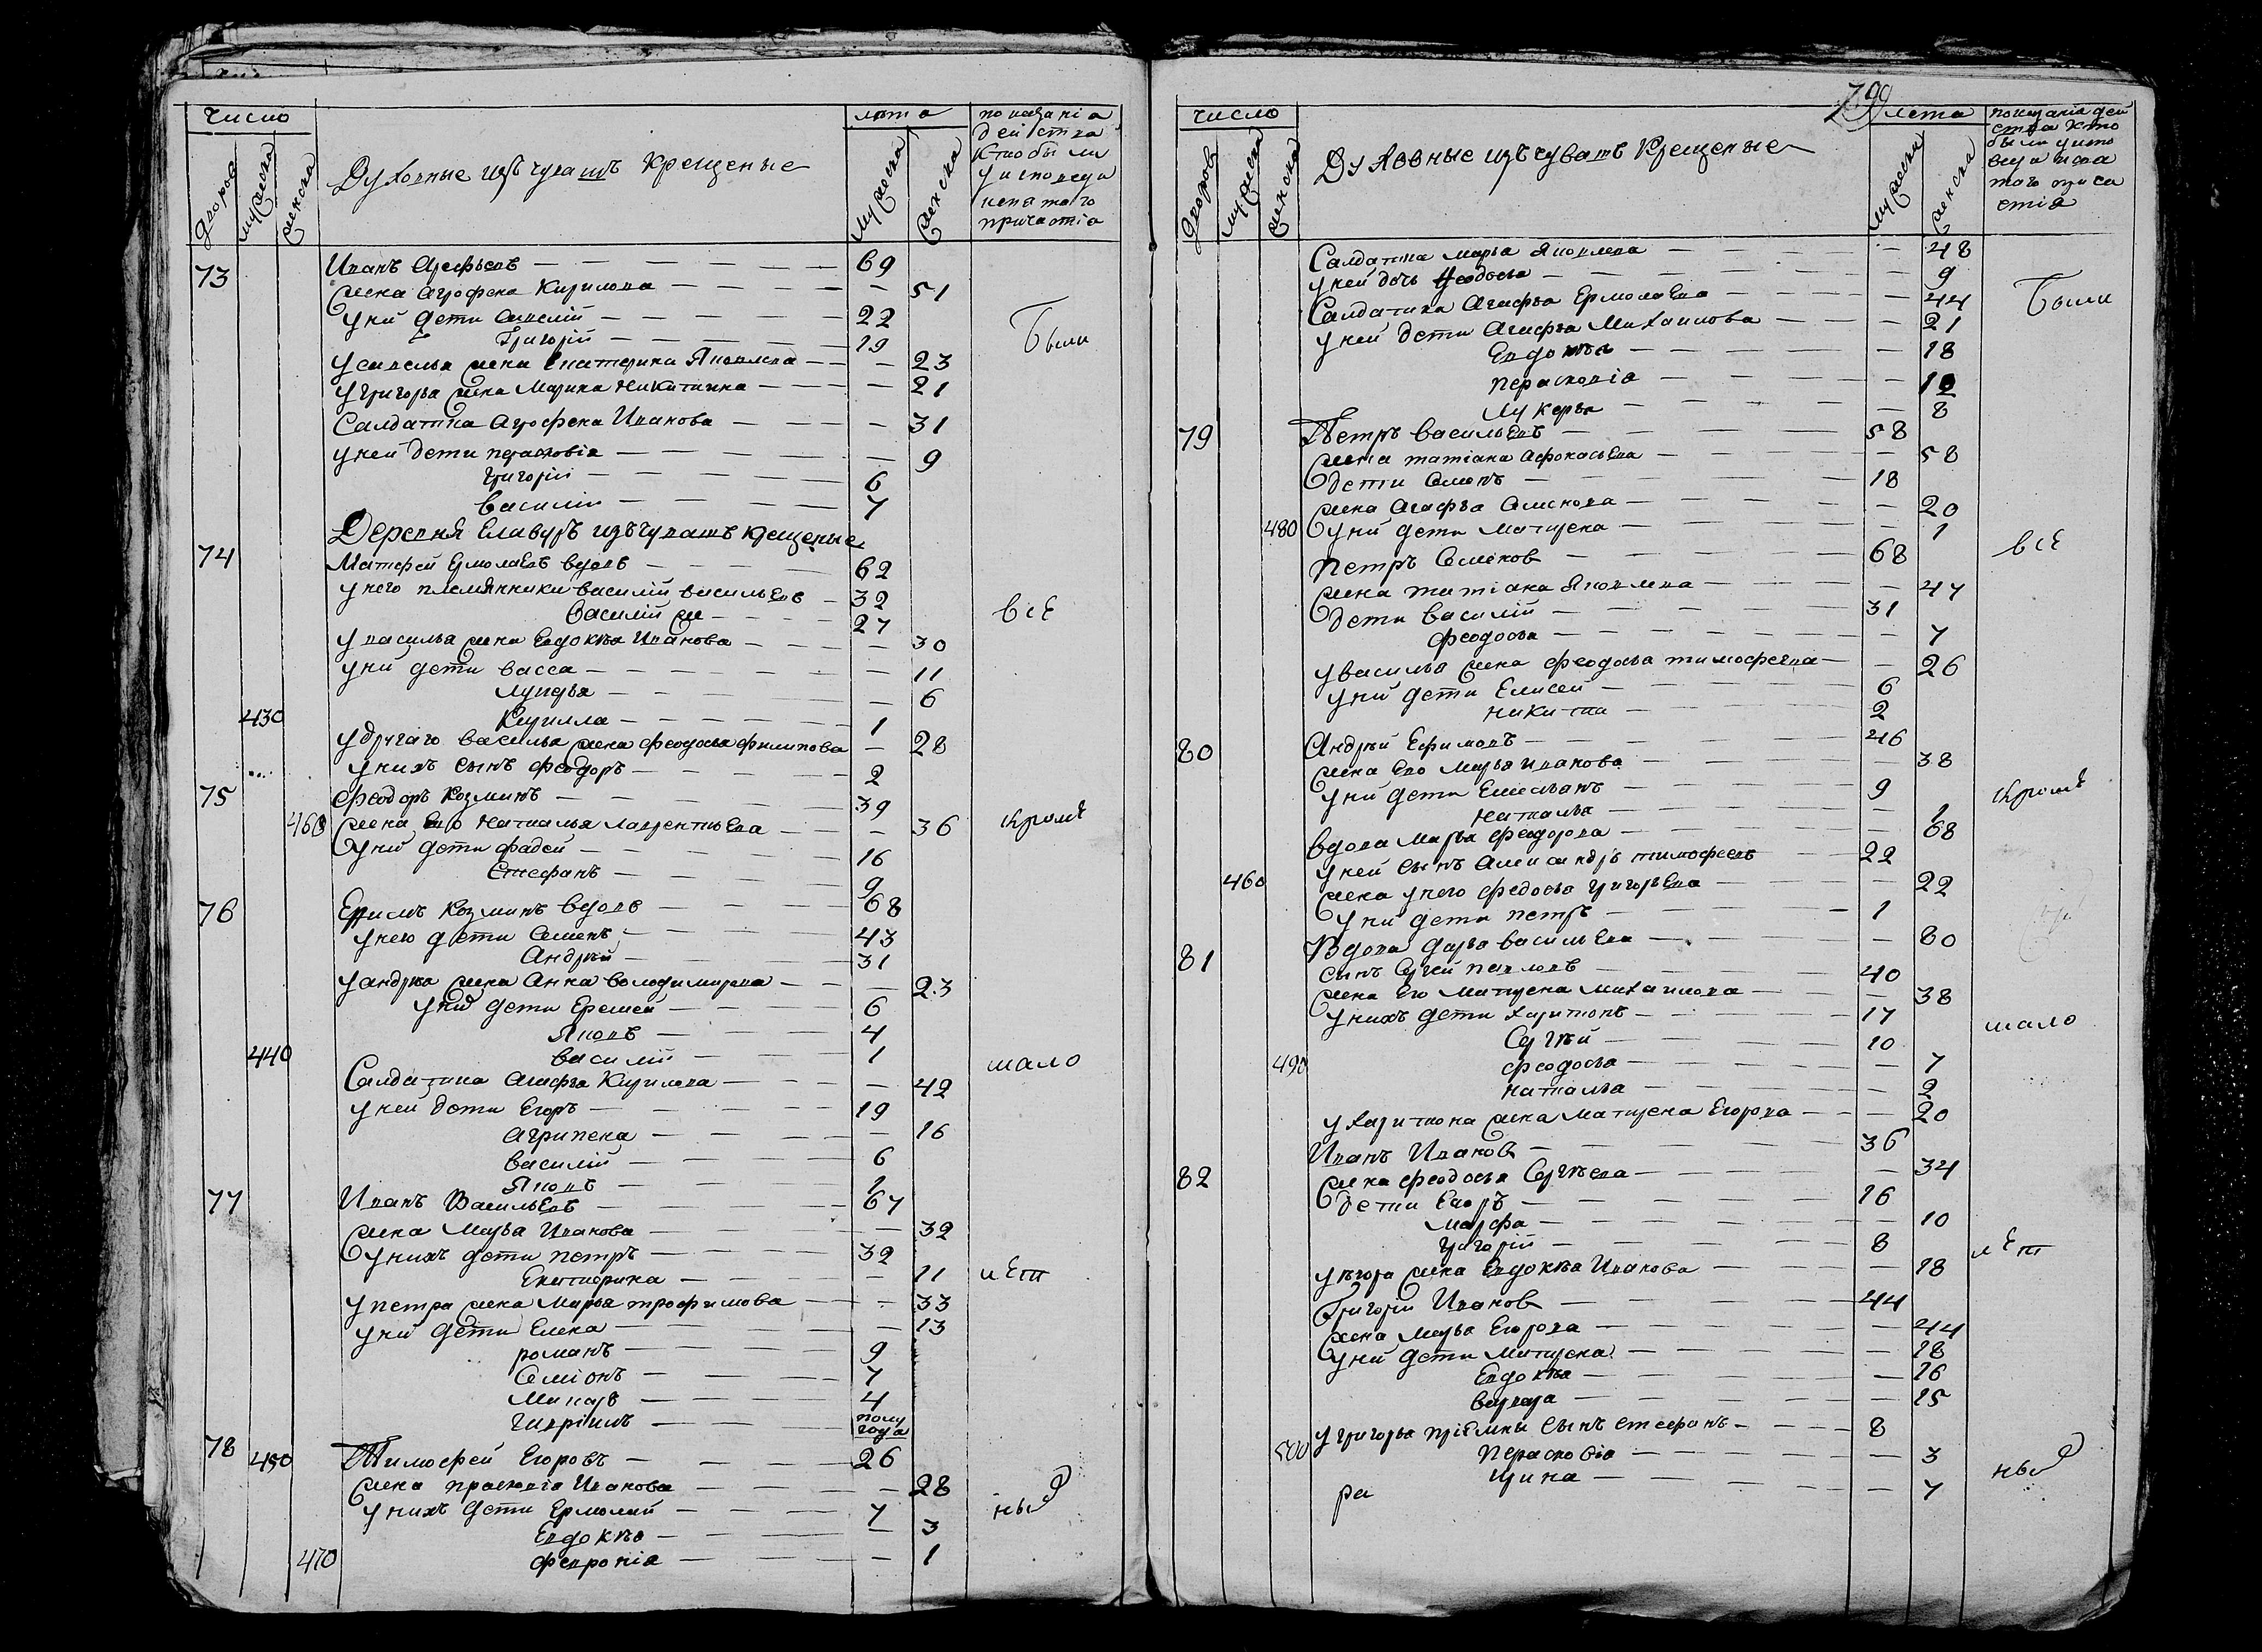 число
лѣта
показанiа
дѣиства
кто были
у исповеди
и святаго
причастiа
дворов
мужеска
женска
Духовные изъ чувашъ крещеные
мужеска
женска
73 Иванъ Арефьевъ — 69
жена Агрофена Кирилова — 51
у ни дети Савелiй — 22
Григорiй — 19
Были
у савелья жена Екатерина Яковлева — 23
у григорья жена Марина Никитина — 21
Салдатка Агрофена Иванова — 31
у ней дети перасковiя — 9
Григорiй — 6
Василiй — 7
Деревня Елавуръ изъ чувашъ крещеные
74 Матфей Ермолаевъ вдовъ — 62
у него племянники василiй васильевъ — 32
Василiй же — 27
всѣ
у василья жена Евдокѣа Иванова — 30
у ни дети васса — 11
Лукерья — 6
430 Кирилла — 1
у другаго василья жена феодосья филипова — 28
у нихъ сынъ феодоръ — 2
75 Феодоръ Козминъ — 39
460 жена Его Наталья Лаврентьева — 36
кромѣ
у ни дети фадей — 16
Стефанъ — 9
76 Ефимъ Козминъ вдовъ — 68
у него дети Семенъ — 43
Андрѣй — 31
у андрѣа жена Анна володимирова — 23
у ни дети Еремей — 6
Яковъ — 4
440 Василiй — 1
мало
Салдатка Агафья Кирилова — 42
у ней дети Егоръ — 19
Агрипена — 16
Василiй — 6
Яковъ — 1
77 Иванъ Васильевъ — 67
жена Марья Иванова — 39
у нихъ дети петръ — 32
Екатиорина — 11
лѣт
у петра жена Марья трофимова — 33
у ни дети Елена — 13
романъ — 9
Семiонъ — 7
Макаръ — 4
Гаврiилъ — полу года
78 450 Тимофей Егоровъ — 26
жена прасковiа Иванова — 28
ныхъ
у нихъ дети Ермолай — 7
Евдокѣа — 3
470 февронiа — 1
799
число
лета
показанiа дей
ства кто
были у испо
веди и свя
таго прича
стiя
дворовъ
мужеска
женска
Духовные изъ чувашъ крещеные
мужеска
женска
Салдатка марья Яковлева — 48
у ней дочь Феодосья — 9
Салдатка Агафья Ермолаева — 44
Были
у ней дети Агафья Михаилова — 21
Евдокѣа — 18
перасковiа — 12
Лукерья — 8
79 Петръ Васильевъ — 58
жена татiана Афонасьева — 58
дети Семонъ — 18
жена Агафья Семенова — 20
480 у ни дети Матрена — 1
всѣ
Петръ Семенов — 68
жена татiана Яковлева — 47
дети Василiй — 31
Феодосья — 7
у василья жена феодосья тимофеева — 26
у ни дети Елисей — 6
Никита — 2
80 Андрѣй Ефимовъ — 46
жена Его Марья Иванова — 38
у ни дети Емельанъ — 9
кромѣ
наталья — 1
вдова Марья Феодорова — 68
у ней сынъ Александръ тимофеевъ — 22
460 жена у него федосья Григорьева — 22
у ни дети петръ — 1
81 Вдова дарья васильева — 80
сынъ Сергей павловъ — 40
жена Его Матрена Михаилова — 38
у нихъ дети харитонъ — 17
мало
Сергѣй — 10
490 феодосья — 7
наталья — 2
у харитона жена Матрена Егорова — 20
Иванъ Иванов — 36
82 жена феодосья Сергѣева — 34
дети Егоръ — 16
марфа — 10
Григорiй — 8
лѣт
у егора жена Евдокѣа Иванова — 18
Григорiй Иванов — 44
жена Марья Егорова — 44
у ни дети Матрена — 18
Евдокѣа — 16
варвара — 15
у григорья прiемны сынъ стефанъ — 8
500 Перасковiа — 3
ирина — 7
ныхъ
ра